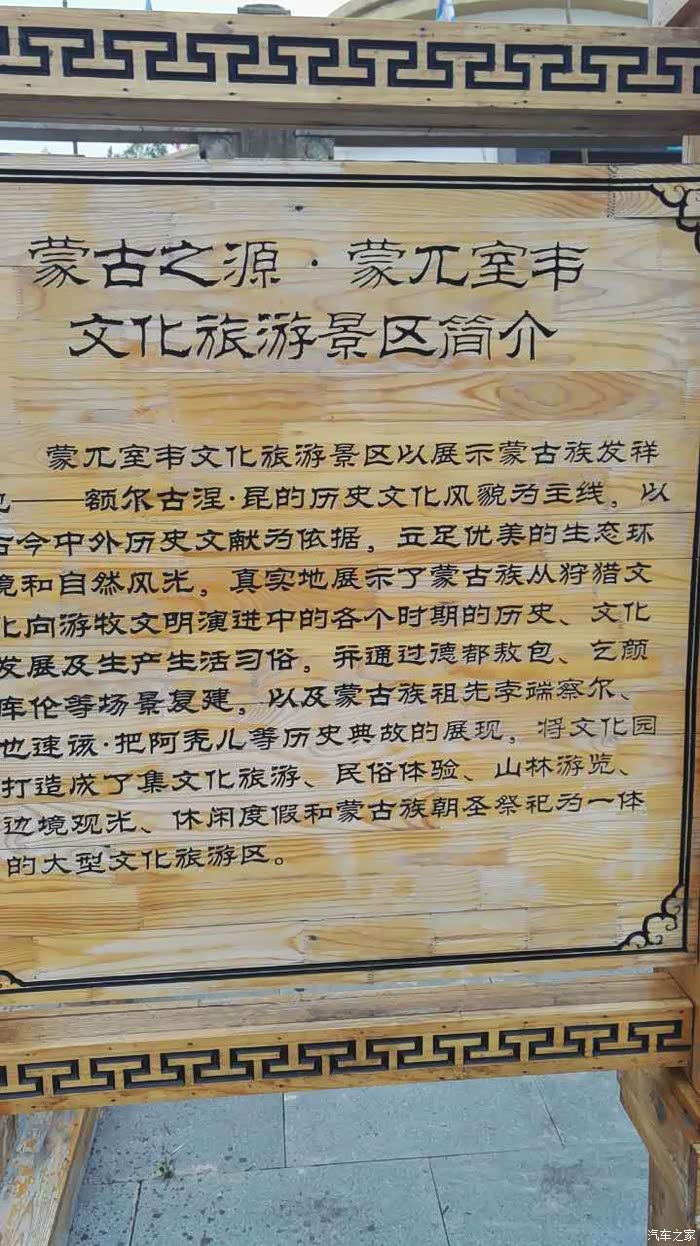 蒙古之源·蒙兀室韦
文化旅游景区简介
蒙兀室韦文化旅游景区以展示蒙古族发祥
地——额尔古涅·昆的历史文化风貌为主线，以
古今中外历史文献为依据，立足优美的生态环
境和自然风光，真实地展示了蒙古族从狩猎文
化向游牧文明演进中的各个时期的历史、文化
发展及生产生活习俗。并通过德都敖包、乞颜
库伦等场景复建，以及蒙古族祖先孛端察尔、
也速该·把阿秃儿等历史典故的展现，将文化园
打造成了集文化旅游、民俗体验、山林游览、
边境观光、休闲度假和蒙古族朝圣祭祀为一体
的大型文化旅游区。
汽车之家